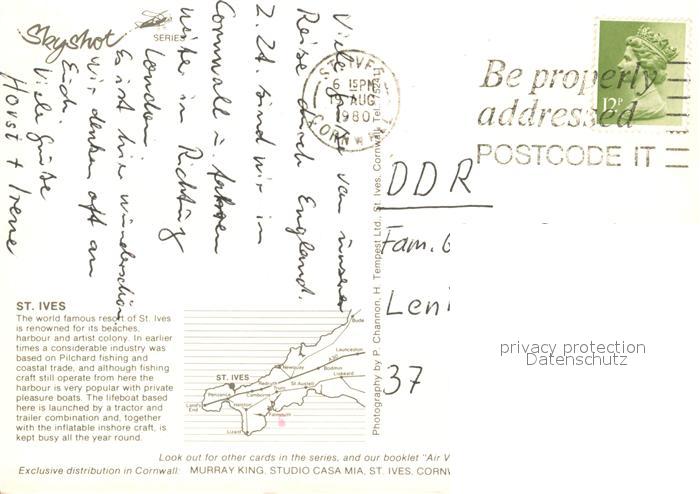 Skyshot
SERIES
Viele Grüße von unserer
Reise durch England.
Z. Zt. sind wir in
Cornwall u. fahren
weiter in Richtung
London
Es ist hier wunderschön
Wir denken oft an
Euch.
Viele Grüße
Horst + Irene
ST. IVES
6 15PM
AUG
1980
CORNWALL
Be properly
addressed
POSTCODE IT
12P
DDR
Fam. G
Leni
37
privacy protection
Datenschutz
Photography by P. Channon, H. Tempest Ltd., St. Ives, Cornwall. Tel.
ST. IVES
The world famous resort of St. Ives
is renowned for its beaches,
harbour and artist colony. In earlier
times a considerable industry was
based on Pilchard fishing and
coastal trade, and although fishing
craft still operate from here the
harbour is very popular with private
pleasure boats. The lifeboat based
here is launched by a tractor and
trailer combination and, together
with the inflatable inshore craft, is
kept busy all the year round.
Bude
Launceston
A30
Newquay
Bodmin
Liskeard
ST. IVES
Redruth
St. Austell
Truro
Camborne
Penzance
Helston
Falmouth
Land's
End
Lizard
Look out for other cards in the series, and our booklet "Air V
Exclusive distribution in Cornwall: MURRAY KING, STUDIO CASA MIA, ST. IVES, CORNW